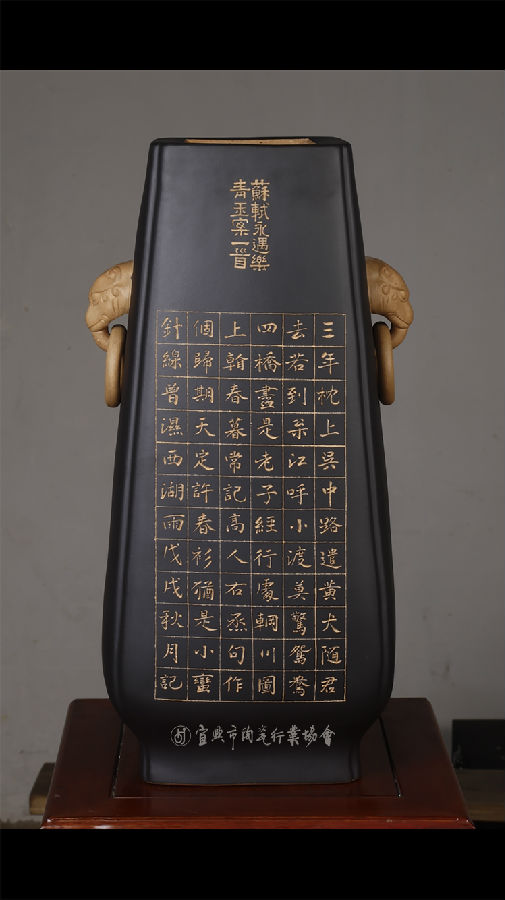 蘇軾永遇樂
青玉案一首
三年枕上吳中路遣黃犬随君
去若到枀江呼小渡莫驚鴛鷺
四橋盡是老子經行處輞川圖
上翰春暮常記高人右丞句作
個歸期天定許春衫猶是小蠻
針線曾濕西湖雨戊戌秋月記
宜興市陶瓷行業協會